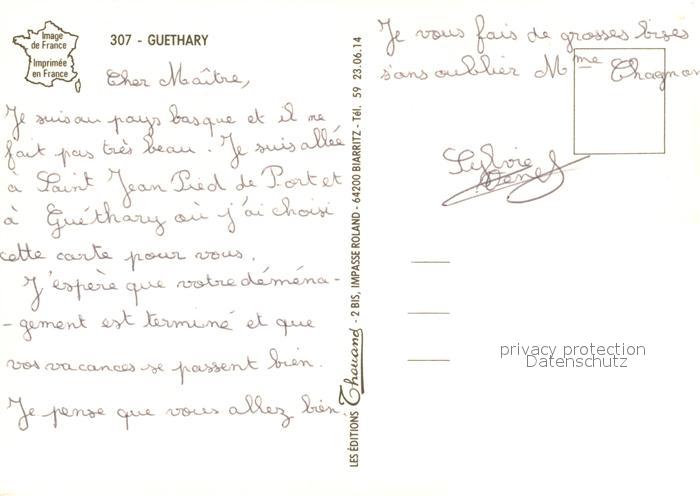 Image
de France
Imprimée
en France
307 - GUETHARY
Cher Maître,
Je suis au pays basque et il ne
fait pas très beau. Je suis allée
à Saint Jean Pied de Port et
à Guéthary où j'ai choisi
cette carte pour vous.
J'espère que votre déména-
-gement est terminé et que
vos vacances se passent bien.
Je pense que vous allez bien.
LES ÉDITIONS Thouand - 2 BIS, IMPASSE ROLAND - 64200 BIARRITZ - Tél. 59 23.06.14
Je vous fais de grosses bises
sans oublier Mme
Sylvie
privacy protection
Datenschutz